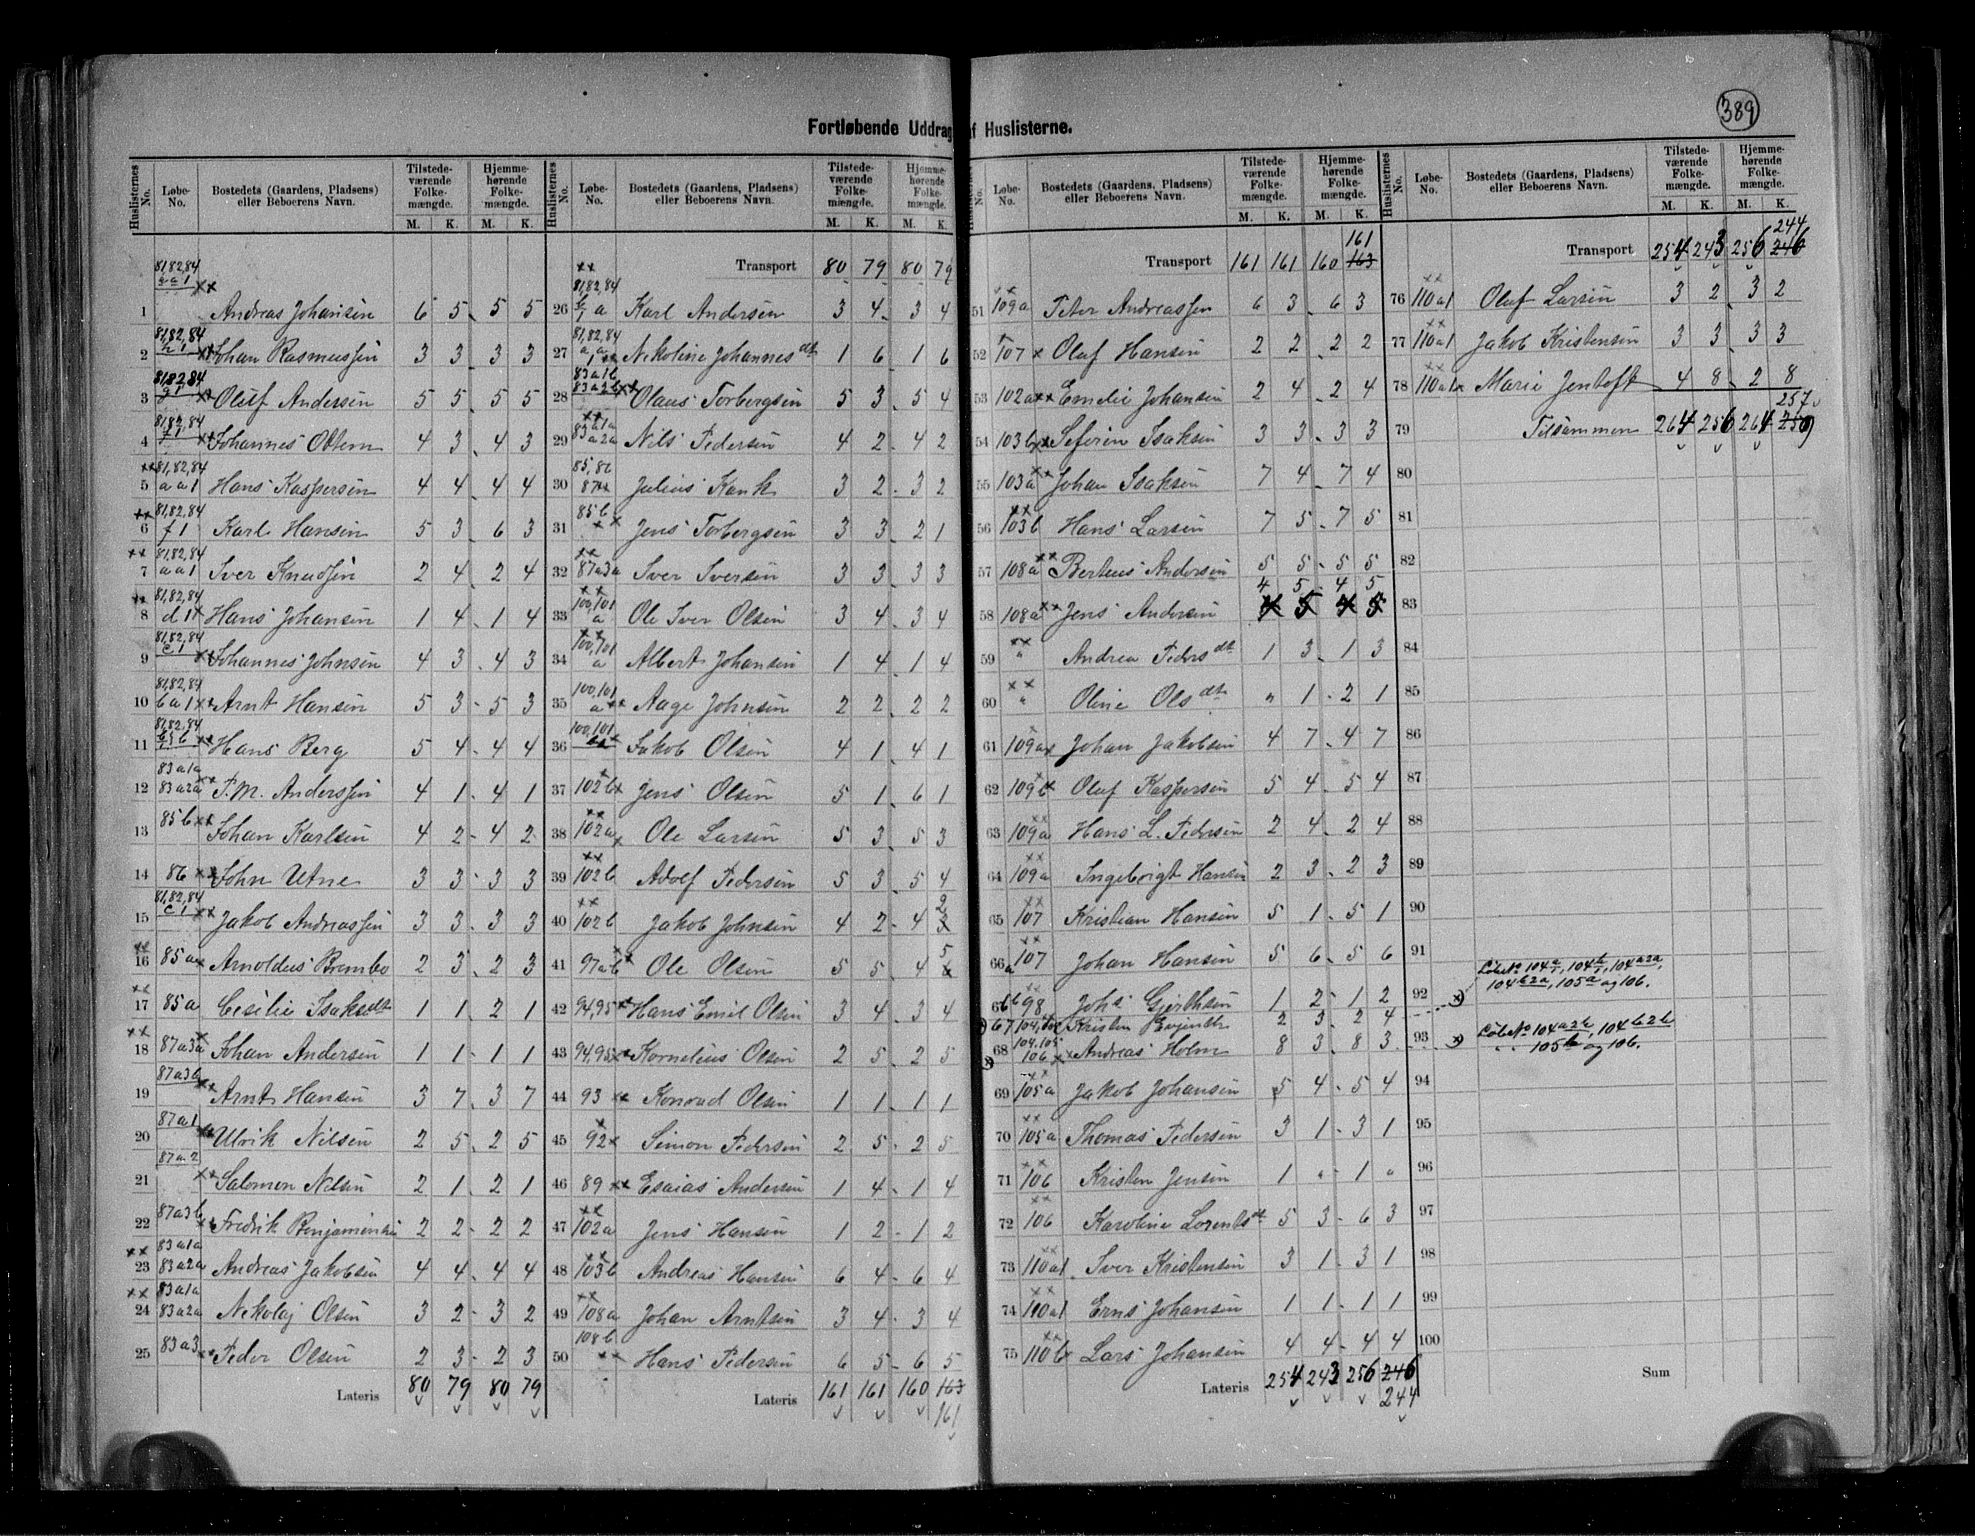 389
Fortløbende Uddrag af Huslisterne.
Huslisternes No. Løbe-No. Bostedets (Gaardens, Pladsens) eller Beboerens Navn. Tilstede-værende Folke-mængde. Hjemme-hørende Folke-mængde.
M. K. M. K.
1 81,82,84 a a 1 xx Andreas Johansen 6 5 5 5
2 81,82,84 h 1 xx Johan Rasmussen 3 3 3 3
3 81,82,84 g 1 xx Oluf Andersen 5 5 5 5
4 81,82,84 f 1 xx Johannes Ottem 4 3 4 3
5 xx 81,82,84 a a 1 Hans Kaspersen 4 4 4 4
6 xx 81,82,84 f 1 Karl Hansen 5 3 6 3
7 xx 81,82,84 a a 1 Iver Knudsen 2 4 2 4
8 xx 81,82,84 d 1 Hans Johansen 1 4 1 4
9 81,82,84 c 1 xx Johannes Johnsen 4 3 4 3
10 81,82,84 b a 1 xx Arnt Hansen 5 3 5 3
11 81,82,84 xx Hans Berg 5 4 4 4
12 83a1a 83a2a xx P. M. Anderssen 4 1 4 1
13 85b xx Johan Karlsen 4 2 4 2
14 86 xx John Utne 3 3 3 3
15 81,82,84 c 1 xx Jakob Andreassen 3 3 3 3
16 xx 85a Arnoldus Brembo 2 3 2 3
17 xx 85a Cesilie Isaksdt 1 1 2 1
18 xx 87a3a Johan Andersen 1 1 1 1
19 87a3b xx Arnt Hansen 3 7 3 7
20 87a1 xx Ulrik Nilsen 2 5 2 5
21 87a2 xx Salomon Nilsen 2 1 2 1
22 87a3b xx Fredrik Benjaminsen 2 2 2 2
23 xx 83a1a 83a2a Andreas Jakobsen 4 4 4 4
24 xx 83a1a 83a2a Nekolaj Olsen 3 2 3 2
25 83a3 xx Peder Olsen 2 3 2 3
Lateris 80 79 80 79
Huslisternes No. Løbe-No. Bostedets (Gaardens, Pladsens) eller Beboerens Navn. Tilstede-værende Folke-mængde. Hjemme-hørende Folke-mængde.
M. K. M. K.
Transport 80 79 80 79
26 xx 81,82,84 Karl Andersen 3 4 3 4
27 81,82,84 a a 1 xx Nekoline Johannesdt 1 6 1 6
28 83a1b 83a2b xx Olaus Torbergsen 5 3 5 4
29 xx 83a1a 83a2a Nils Pedersen 4 2 4 2
30 85,86 87 Julius Kank 3 2 3 2
31 85b xx Jens Torbergsen 3 3 2 1
32 xx 87a3a Iver Iversen 3 3 3 3
33 xx 100,101 a Ole Iver Olsen 3 4 3 4
34 xx 100,101 a Albert Johansen 1 4 1 4
35 100,101 a xx Aage Johnsen 2 2 2 2
36 100,101 Jakob Olsen 4 1 4 1
37 102b xx Jens Olsen 5 1 6 1
38 xx 102a Ole Larsen 5 3 5 3
39 xx 102b Adolf Pedersen 5 3 5 4
40 xx 102b Jakob Johnsen 4 2 4 3 2
41 97ab xx Ole Olsen 5 5 4 5
42 94,95 xx Hans Emil Olsen 3 4 3 4
43 94,95 xx Kornelius Olsen 2 5 2 5
44 93 xx Konrad Olsen 1 1 1 1
45 92 xx Simon Pedersen 2 5 2 5
46 89 xx Esaias Andersen 1 4 1 4
47 xx 102a Jens Hansen 1 2 1 2
48 xx 103b Andreas Hansen 6 4 6 4
49 xx 108a Johan Arntsen 3 4 3 4
50 108b xx Hans Pedersen 6 5 6 5
Lateris 161 161 160 163
161
No. Løbe-No. Bostedets (Gaardens, Pladsens) eller Beboerens Navn. Tilstede-værende Folke-mængde. Hjemme-hørende Folke-mængde.
M. K. M. K.
161
Transport 161 161 160 163
51 xx 109a Peter Andreassen 6 3 6 3
52 107 x Oluf Hansen 2 2 2 2
53 102a xx Emelie Johansen 2 4 2 4
54 103b xx Seferien Isaksen 3 3 3 3
55 103a xx Johan Isaksen 7 4 7 4
56 xx 103b Hans Larsen 7 5 7 5
57 108a xx Berteus Andersen 5 5 5 5
4 5 4 5
58 108a xx Jens Andersen 4 5 4 5
59 xx " Andrea Pedersdt 1 3 1 3
60 xx " Oline Olsdt " 1 2 1
61 109a xx Johan Jakobsen 4 7 4 7
62 109b xx Oluf Kaspersen 5 4 5 4
63 xx 109a Hans L. Pedersen 2 4 2 4
64 xx 109a Ingebrigt Hansen 2 3 2 3
65 xx 107 Kristian Hansen 5 1 5 1
66a xx 107 Johan Hansen 5 6 5 6
66b xx 98 Johs Gjerthsen 1 2 1 2
67 104, Kristen 2 3 2 4
68 104,105 106 xx Andreas Holm 8 3 8 3
69 xx 105a Jakob Johansen 5 4 5 4
70 xx 105a Thomas Pedersen 3 1 3 1
71 xx 106 Kristen Jensen 1 " 1 "
72 xx 106 Karoline Lorentsdt 5 3 6 3
73 xx 110a1 Iver Kristensen 3 1 3 1
74 xx 110a1 Erns Johansen 1 1 1 1
75 xx 110b Lars Johansen 4 4 4 4
Lateris 254 243 256 246
244
Huslisternes No. Løbe-No. Bostedets (Gaardens, Pladsens) eller Beboerens Navn. Tilstede-værende Folke-mængde. Hjemme-hørende Folke-mængde.
M. K. M. K.
244
Transport 254 243 256 246
76 xx 110a1 Oluf Larsen 3 2 3 2
77 xx 110a1 Jakob Kristensen 3 3 3 3
78 xx 110a1 Marie Jentoft 4 8 2 8
257
79 Tilsammen 264 256 264 259
80
81
82
83
84
85
86
87
88
89
90
91
92 x) Løbe No 104a/1, 104b/1, 104a2a, 104b2a, 105a og 106.
93 x) Løbe No 104a2b, 104b2b 105b og 106.
94
95
96
97
98
99
100
Sum